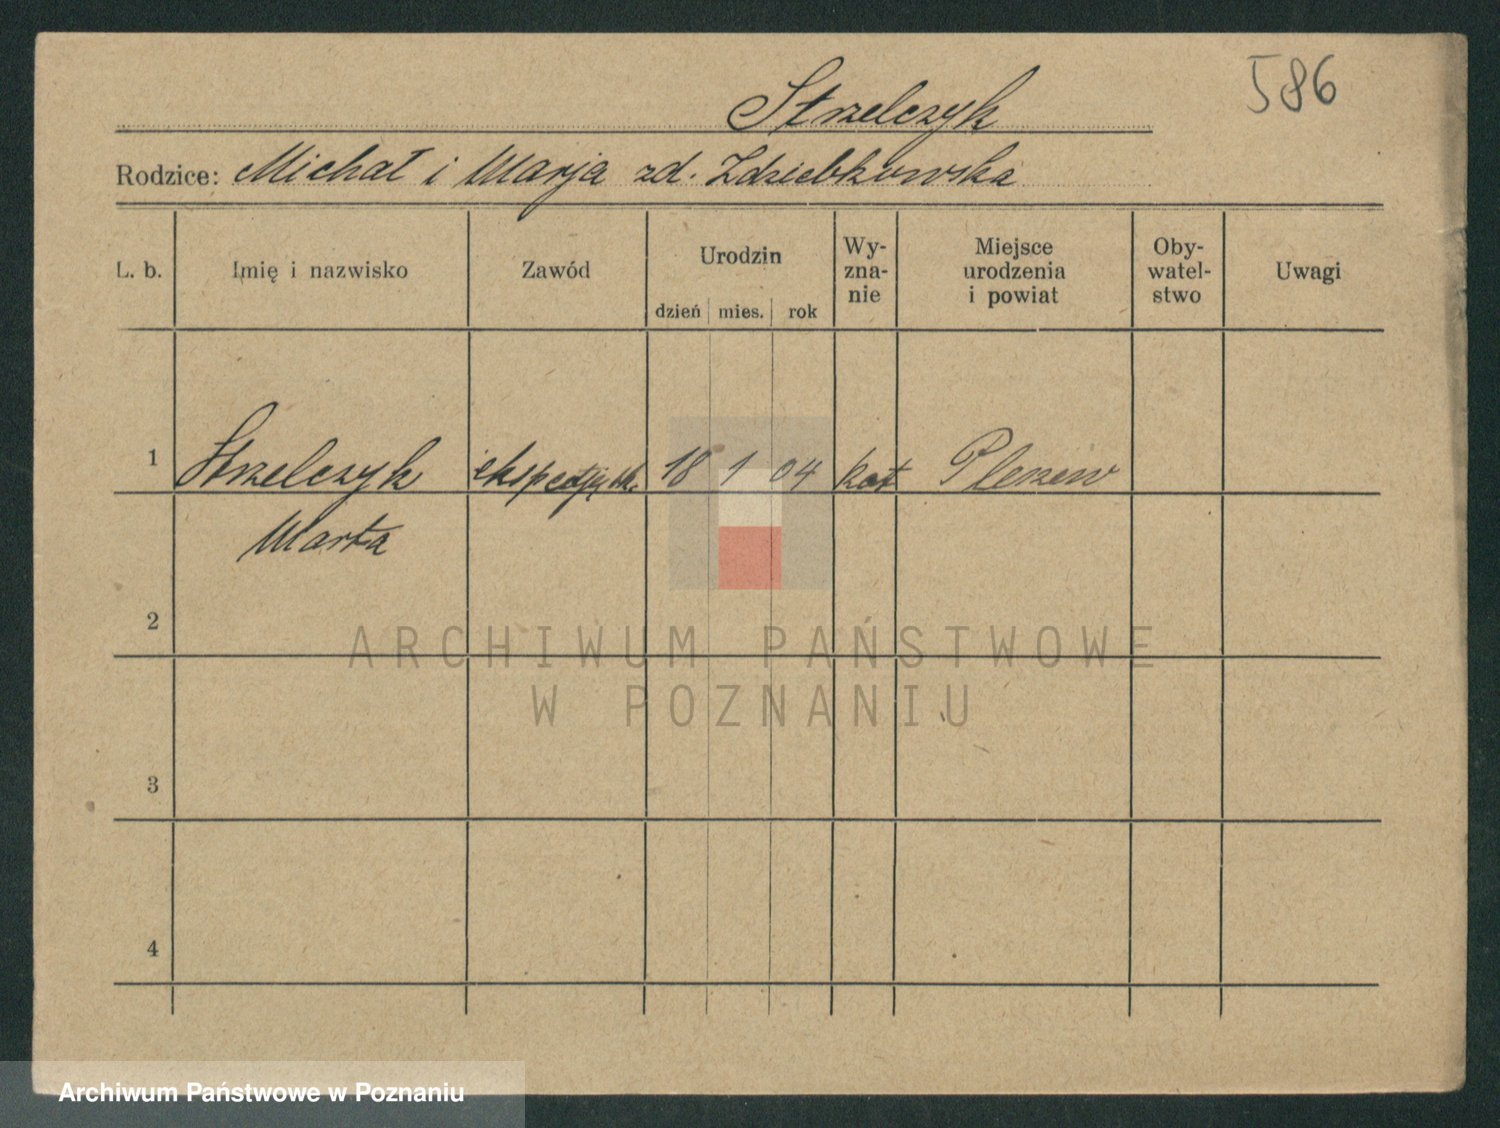 586
Strzelczyk
Rodzice: Michał i Marja zd. Zdziebkowska
L. b. Imię i nazwisko Zawód Urodzin dzień mies. rok Wy-
zna-
nie Miejsce
urodzenia
i powiat Oby-
watel-
stwo Uwagi
1 Strzelczyk 18 1 04 kat Pleszew
Marta
2
3
4
ARCHIWUM PAŃSTWOWE
W POZNANIU
Archiwum Państwowe w Poznaniu